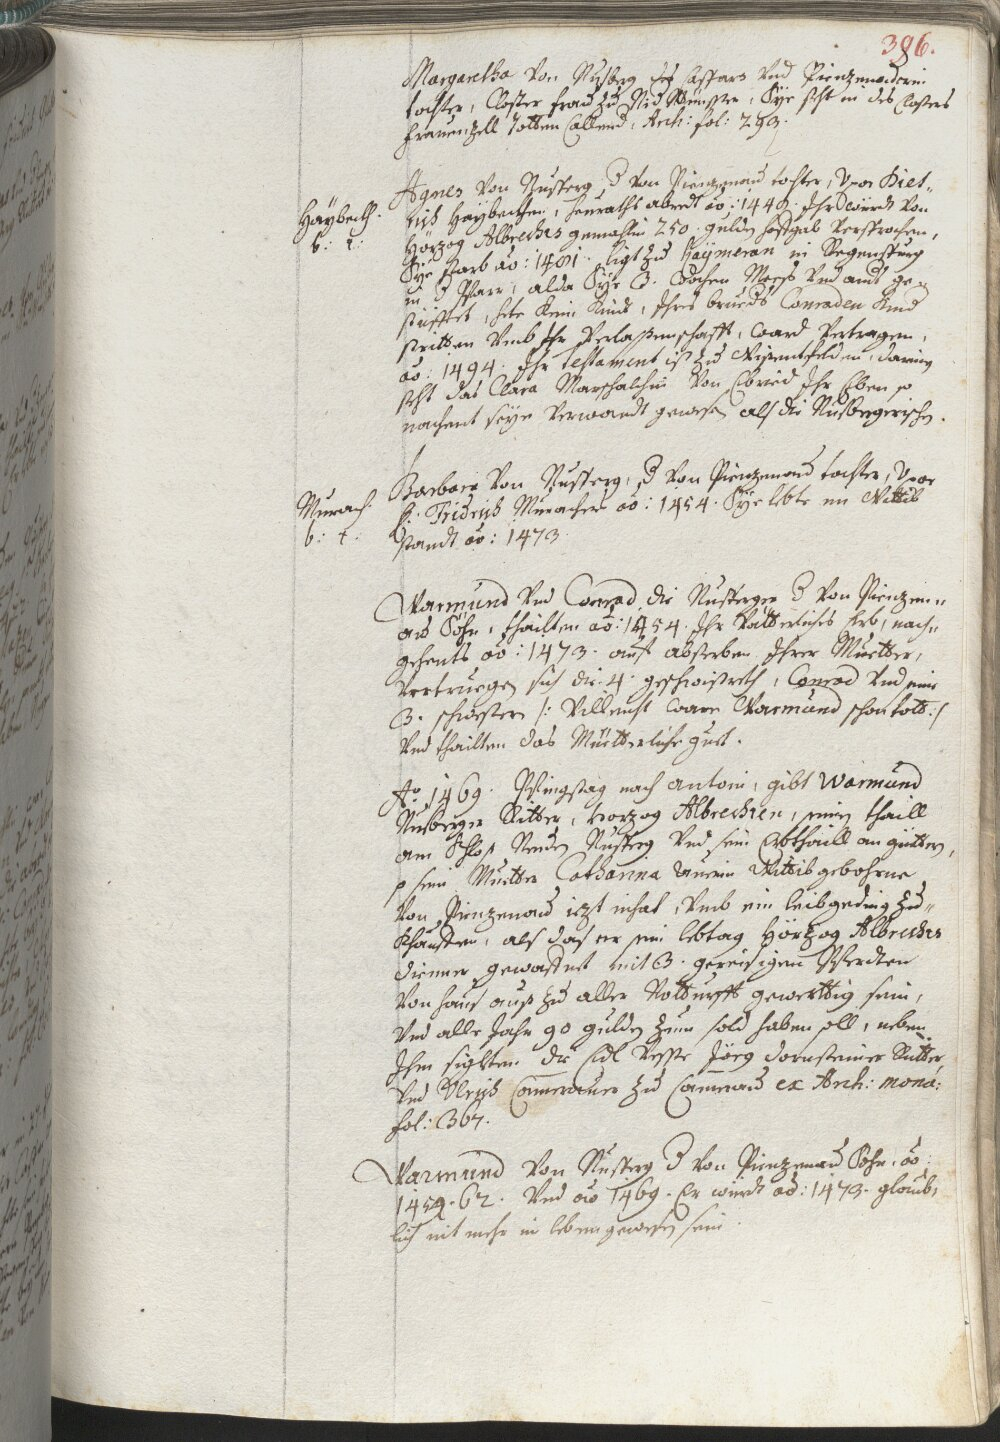 396.
Margaretha von Nusberg des Caspars und Pienzenauerin
tochter, Closter frau zu Nid Münster, Sye steht in des Closters
frauenzell Todten Callend: Arch: fol: 293.
Haÿbeckh.
b: t:
Agnes von Nusberg, d von Pienzenau tochter, Uxor Diet-
rich Haÿbeckhen, heuraths abredt aõ: 1446. Ihr würdt von
Hörzog Albrechts gemahlin 250. gulden heÿrgab versprochen,
Sye starb aõ: 1481. ligt zu Haÿmeran in Regenspurg
in d Pfarr, alda Sye 3. wochen Mess und ambt ge-
stüfftet, hete kein kind, Ihres brueders Conraden kind
stritten umb Ihr Verlaßenschafft, ward vertragen,
aõ: 1494. Ihr Testament ist zu Wisentfelden, darinn
steht das Clara Marschalchin von Ihr Eben so
nachent seÿe verwandt gewesen als die Nusbergerischen.
Murach.
b: t:
Barbara von Nusberg, d von Pienzenau tochter, Uxor
h: Fridrich Muracher aõ: 1454. Sye lebte im Wittib
standt aõ: 1473.
Warmund und Conrad die Nusberger d von Pienzen-
au Söhn, thailten aõ: 1454. Ihr Vätterliches Erb, nach-
gehents aõ: 1473. auf absterben Ihrer Muetter,
vertruegen sich die 4. geschwistreth, Conrad und seine
3. schwestern /: villeicht ware Warmund schon todt :/
und thailten das Müetterliche guet.
Aõ 1469. Pfingstag nach antoni, gibt Warmund
Nusberger Ritter, Herzog Albrechten, seinen thaill
am Schloß Neuen Nusberg und sein Erbthaill an güettern,
so sein Muetter Catharina Wittib gebohrne
von Pienzenau iezt inhat, umb ein leibgeding zu-
khauffen, als das er sein lebtag Hörzog Albrechts
diener gewaffnet mit 3. gereisigen Pferdten
von haus auß zu aller Notturfft gewerttig sein,
und alle Jahr 90 gulden zum sold haben soll, neben
Ihm siglten der Edl Veste Jörg dornsteiner Ritter,
und Ulrich Camerauer zu Camerau ex Arch: mona:
fol: 367.
Warmund von Nusberg d von Pienzenau Sohn, aõ:
1454. 62. und aõ 1469. Er würdt aõ: 1473. glaub-
lich nit mehr in leben gewesen sein.